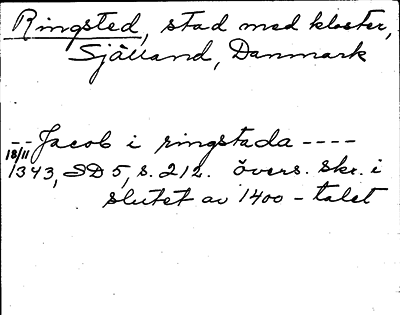 Ringsted, stad med kloster,
Själland, Danmark
-- Jacob i ringstada ----
18/11
1343, SD 5, s. 212. övers. skr. i
slutet av 1400-talet